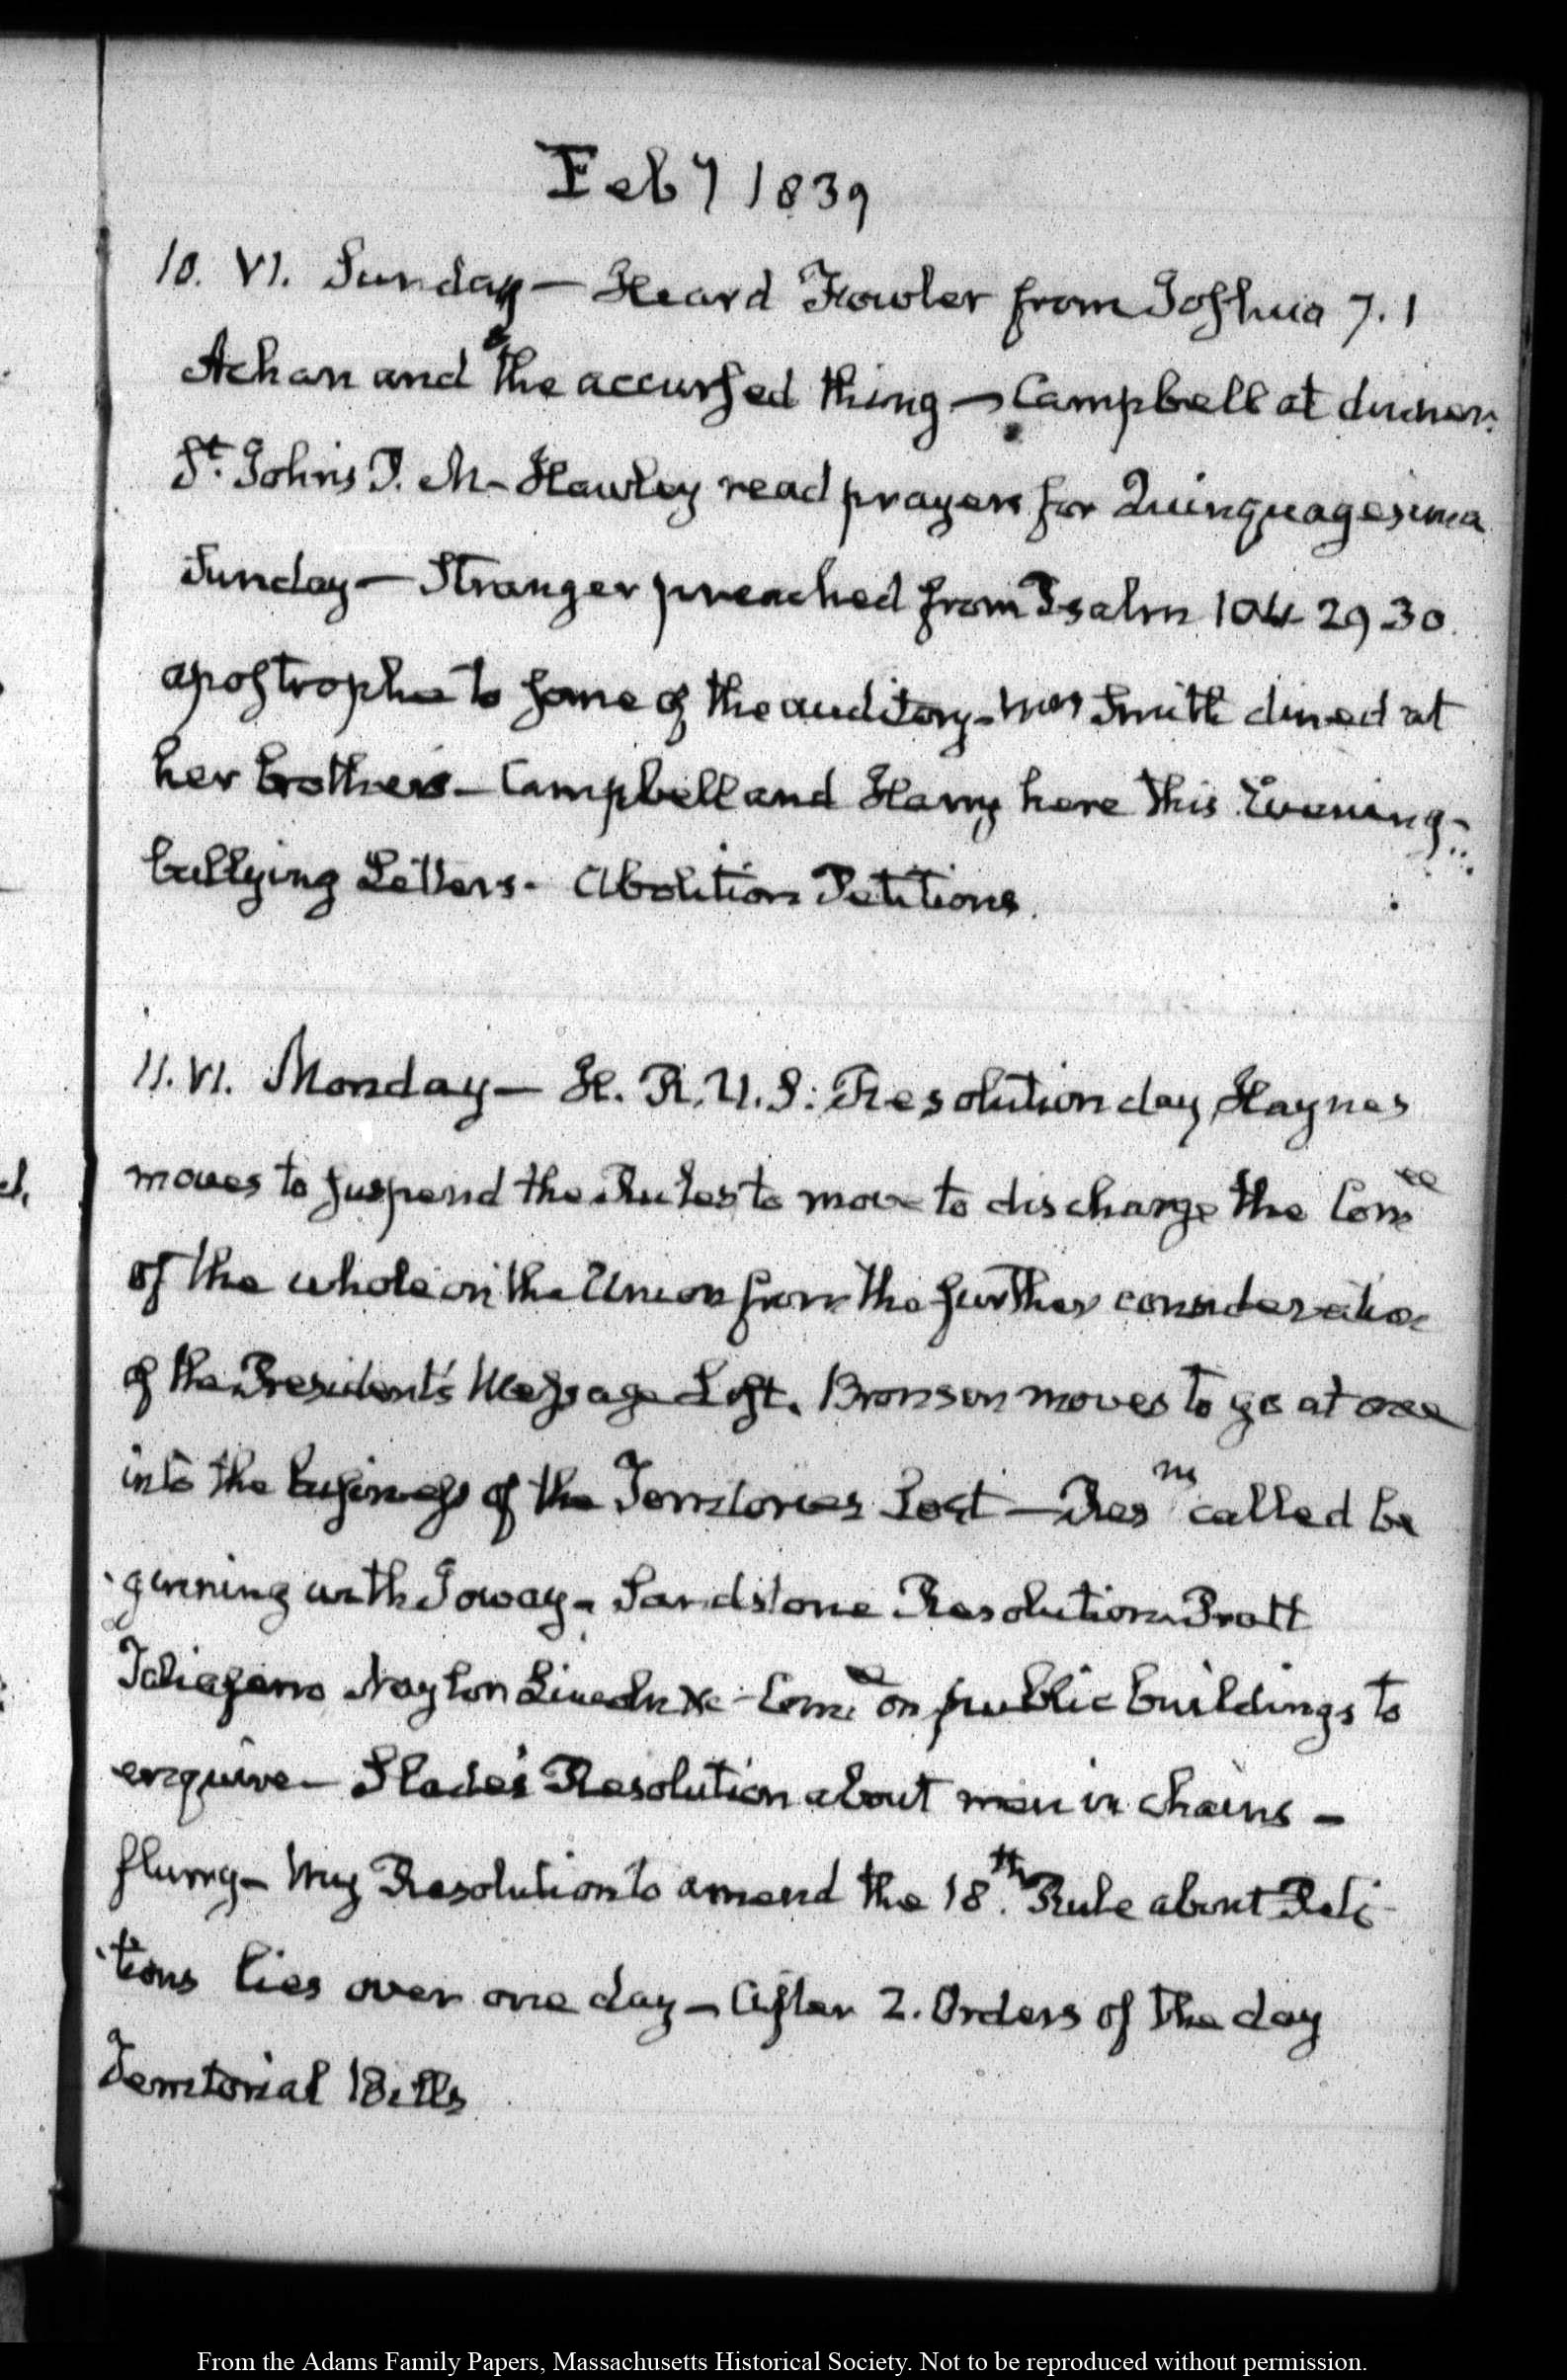 Feby 1839
10. VI. Sunday — Heard Fowler from Joshua 7. 1
Achan and the accursed thing — Campbell at dinner.
St. Johns P. M - Hawley read prayers for Quinquagesima
Sunday — Stranger preached from Psalm 104 29 30.
apostrophe to some of the auditory - Mrs Smith dined at
her brothers — Campbell and Harry here this Evening -
bullying Letters - Abolition Petitions.
11. VI. Monday — H. R. U. S: Resolution day Haynes
moves to suspend the Rules to move to discharge the Comee
of the whole on the Union from the further consideration
of the President's Message Lost. Bronson moves to go at once
into the business of the Territories Lost — Resns called be
ginning with Ioway - Sandstone Resolution Pratt
Taliaferro Naylor Lincoln &c - Comee on public buildings to
enquire — Slade's Resolution about men in chains —
flurry — My Resolution to amend the 18.th Rule about Peti-
tions lies over one day — After 2. Orders of the day
Territorial Bills
From the Adams Family Papers, Massachusetts Historical Society. Not to be reproduced without permission.